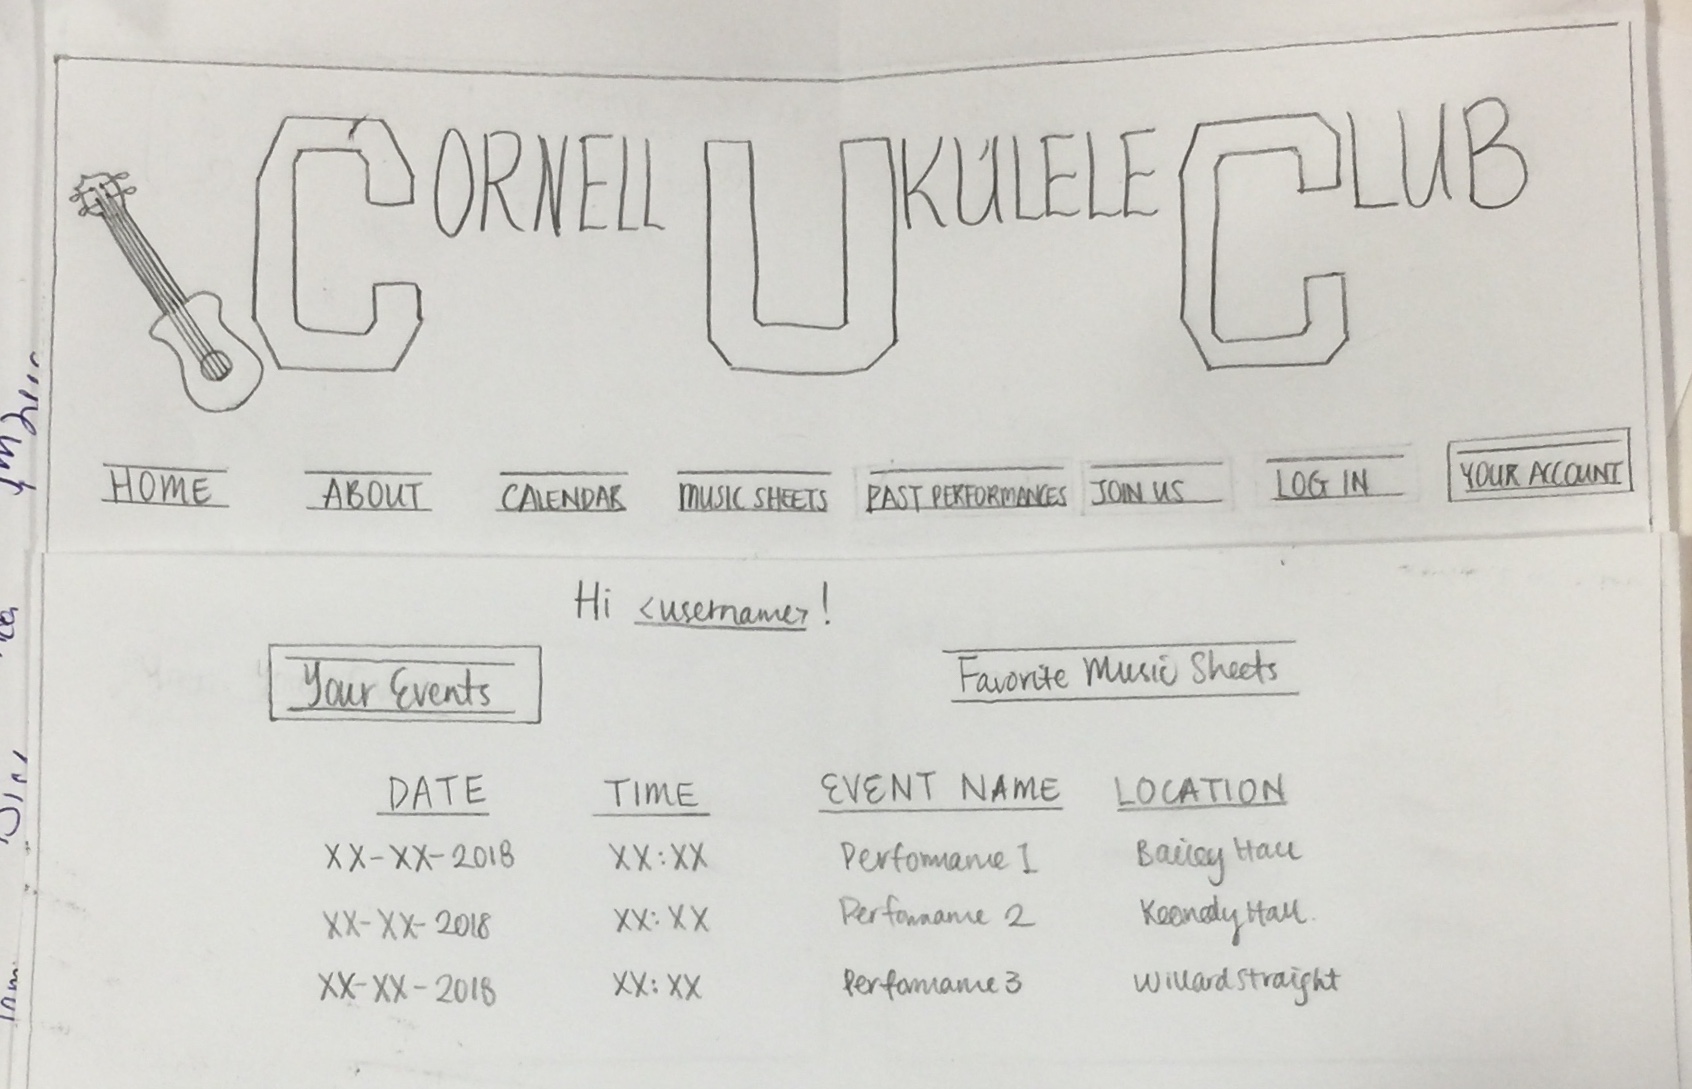 CORNELL UKULELE CLUB
HOME ABOUT CALENDAR MUSIC SHEETS PAST PERFORMANCES JOIN US LOG IN YOUR ACCOUNT
Hi <username>!
Your Events Favorite Music Sheets
DATE TIME EVENT NAME LOCATION
XX-XX-2018 XX:XX Performance 1 Bailey Hall
XX-XX-2018 XX:XX Performance 2 Kennedy Hall.
XX-XX-2018 XX:XX Performance 3 Willard Straight